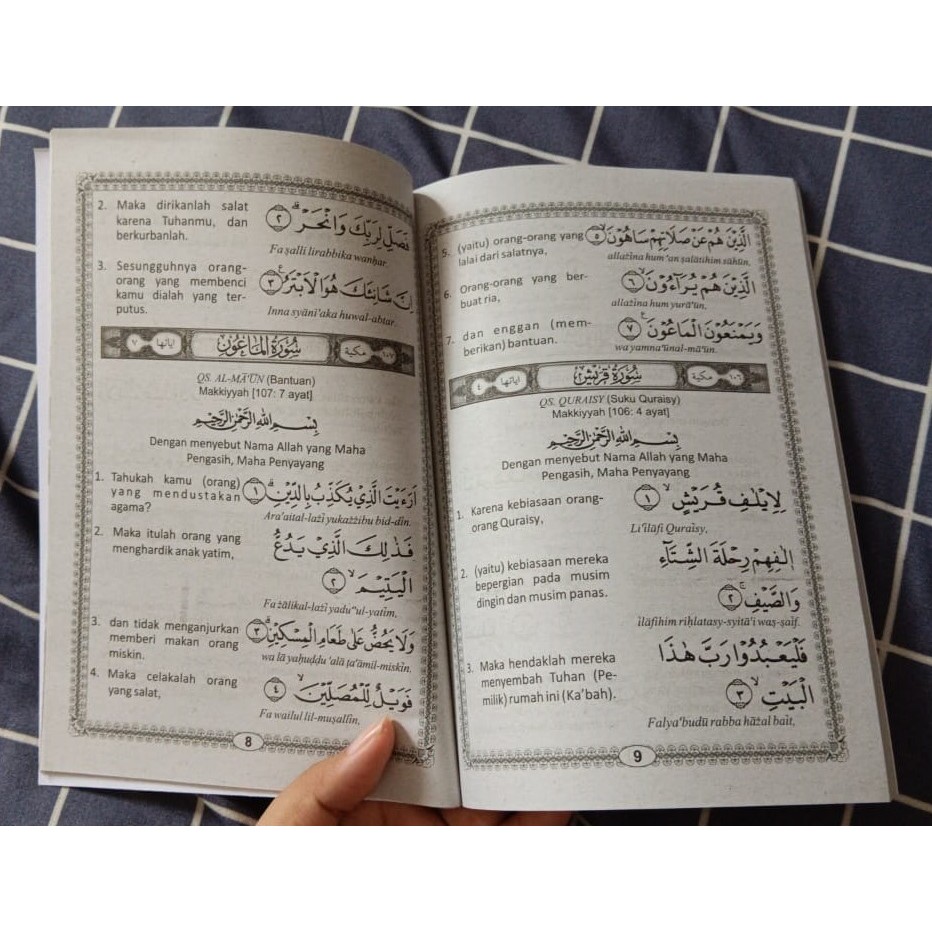 2. Maka dirikanlah salat
karena Tuhanmu, dan
berkurbanlah.
فَصَلِّ لِرَبِّكَ وَانْحَرْۗ ٢
Fa ṣalli lirabbika wanḥar.
3. Sesungguhnya orang-
orang yang membenci
kamu dialah yang ter-
putus.
اِنَّ شَانِئَكَ هُوَ الْاَبْتَرُ ٣
Inna syāni'aka huwal-abtar.
اياتها ٧ سُوْرَةُ الْمَاعُوْنِ مكية ١٠٧
QS. AL-MĀ'ŪN (Bantuan)
Makkiyyah [107: 7 ayat]
بِسْمِ اللّٰهِ الرَّحْمٰنِ الرَّحِيْمِ
Dengan menyebut Nama Allah yang Maha
Pengasih, Maha Penyayang
1. Tahukah kamu (orang)
yang mendustakan
agama?
اَرَءَيْتَ الَّذِيْ يُكَذِّبُ بِالدِّيْنِۗ ١
Ara'aital-lażī yukażżibu bid-dīn.
2. Maka itulah orang yang
menghardik anak yatim,
فَذٰلِكَ الَّذِيْ يَدُعُّ
الْيَتِيْمَۙ ٢
Fa żālikal-lażī yadu''ul-yatīm.
3. dan tidak menganjurkan
memberi makan orang
miskin.
وَلَا يَحُضُّ عَلٰى طَعَامِ الْمِسْكِيْنِۗ ٣
wa lā yaḥuḍḍu 'alā ṭa'āmil-miskīn.
4. Maka celakalah orang
yang salat,
فَوَيْلٌ لِّلْمُصَلِّيْنَۙ ٤
Fa wailul lil-muṣallīn,
8
5. (yaitu) orang-orang yang
lalai dari salatnya,
الَّذِيْنَ هُمْ عَنْ صَلَاتِهِمْ سَاهُوْنَۙ ٥
allażīna hum 'an ṣalātihim sāhūn.
6. Orang-orang yang ber-
buat ria,
الَّذِيْنَ هُمْ يُرَاۤءُوْنَۙ ٦
allażīna hum yurā'ūn,
7. dan enggan (mem-
berikan) bantuan.
وَيَمْنَعُوْنَ الْمَاعُوْنَ ٧
wa yamna'ūnal-mā'ūn.
اياتها ٤ سُوْرَةُ قُرَيْشٍ مكية ١٠٦
QS. QURAISY (Suku Quraisy)
Makkiyyah [106: 4 ayat]
بِسْمِ اللّٰهِ الرَّحْمٰنِ الرَّحِيْمِ
Dengan menyebut Nama Allah yang Maha
Pengasih, Maha Penyayang
1. Karena kebiasaan orang-
orang Quraisy,
لِاِيْلٰفِ قُرَيْشٍۙ ١
Li'ilāfi Quraisy,
2. (yaitu) kebiasaan mereka
bepergian pada musim
dingin dan musim panas.
اٖلٰفِهِمْ رِحْلَةَ الشِّتَاۤءِ
وَالصَّيْفِۚ ٢
īlāfihim riḥlatasy-syitā'i waṣ-ṣaīf.
3. Maka hendaklah mereka
menyembah Tuhan (Pe-
milik) rumah ini (Ka'bah).
فَلْيَعْبُدُوْا رَبَّ هٰذَا
الْبَيْتِۙ ٣
Falya'budū rabba hāżal bait,
9